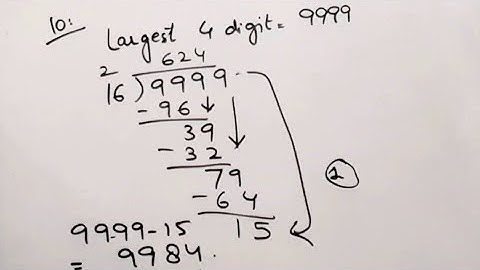 10:
Largest 4 digit = 9999
2 624
16)9999
- 96
39
- 32
79
- 64
15
2
9999-15
= 9984.